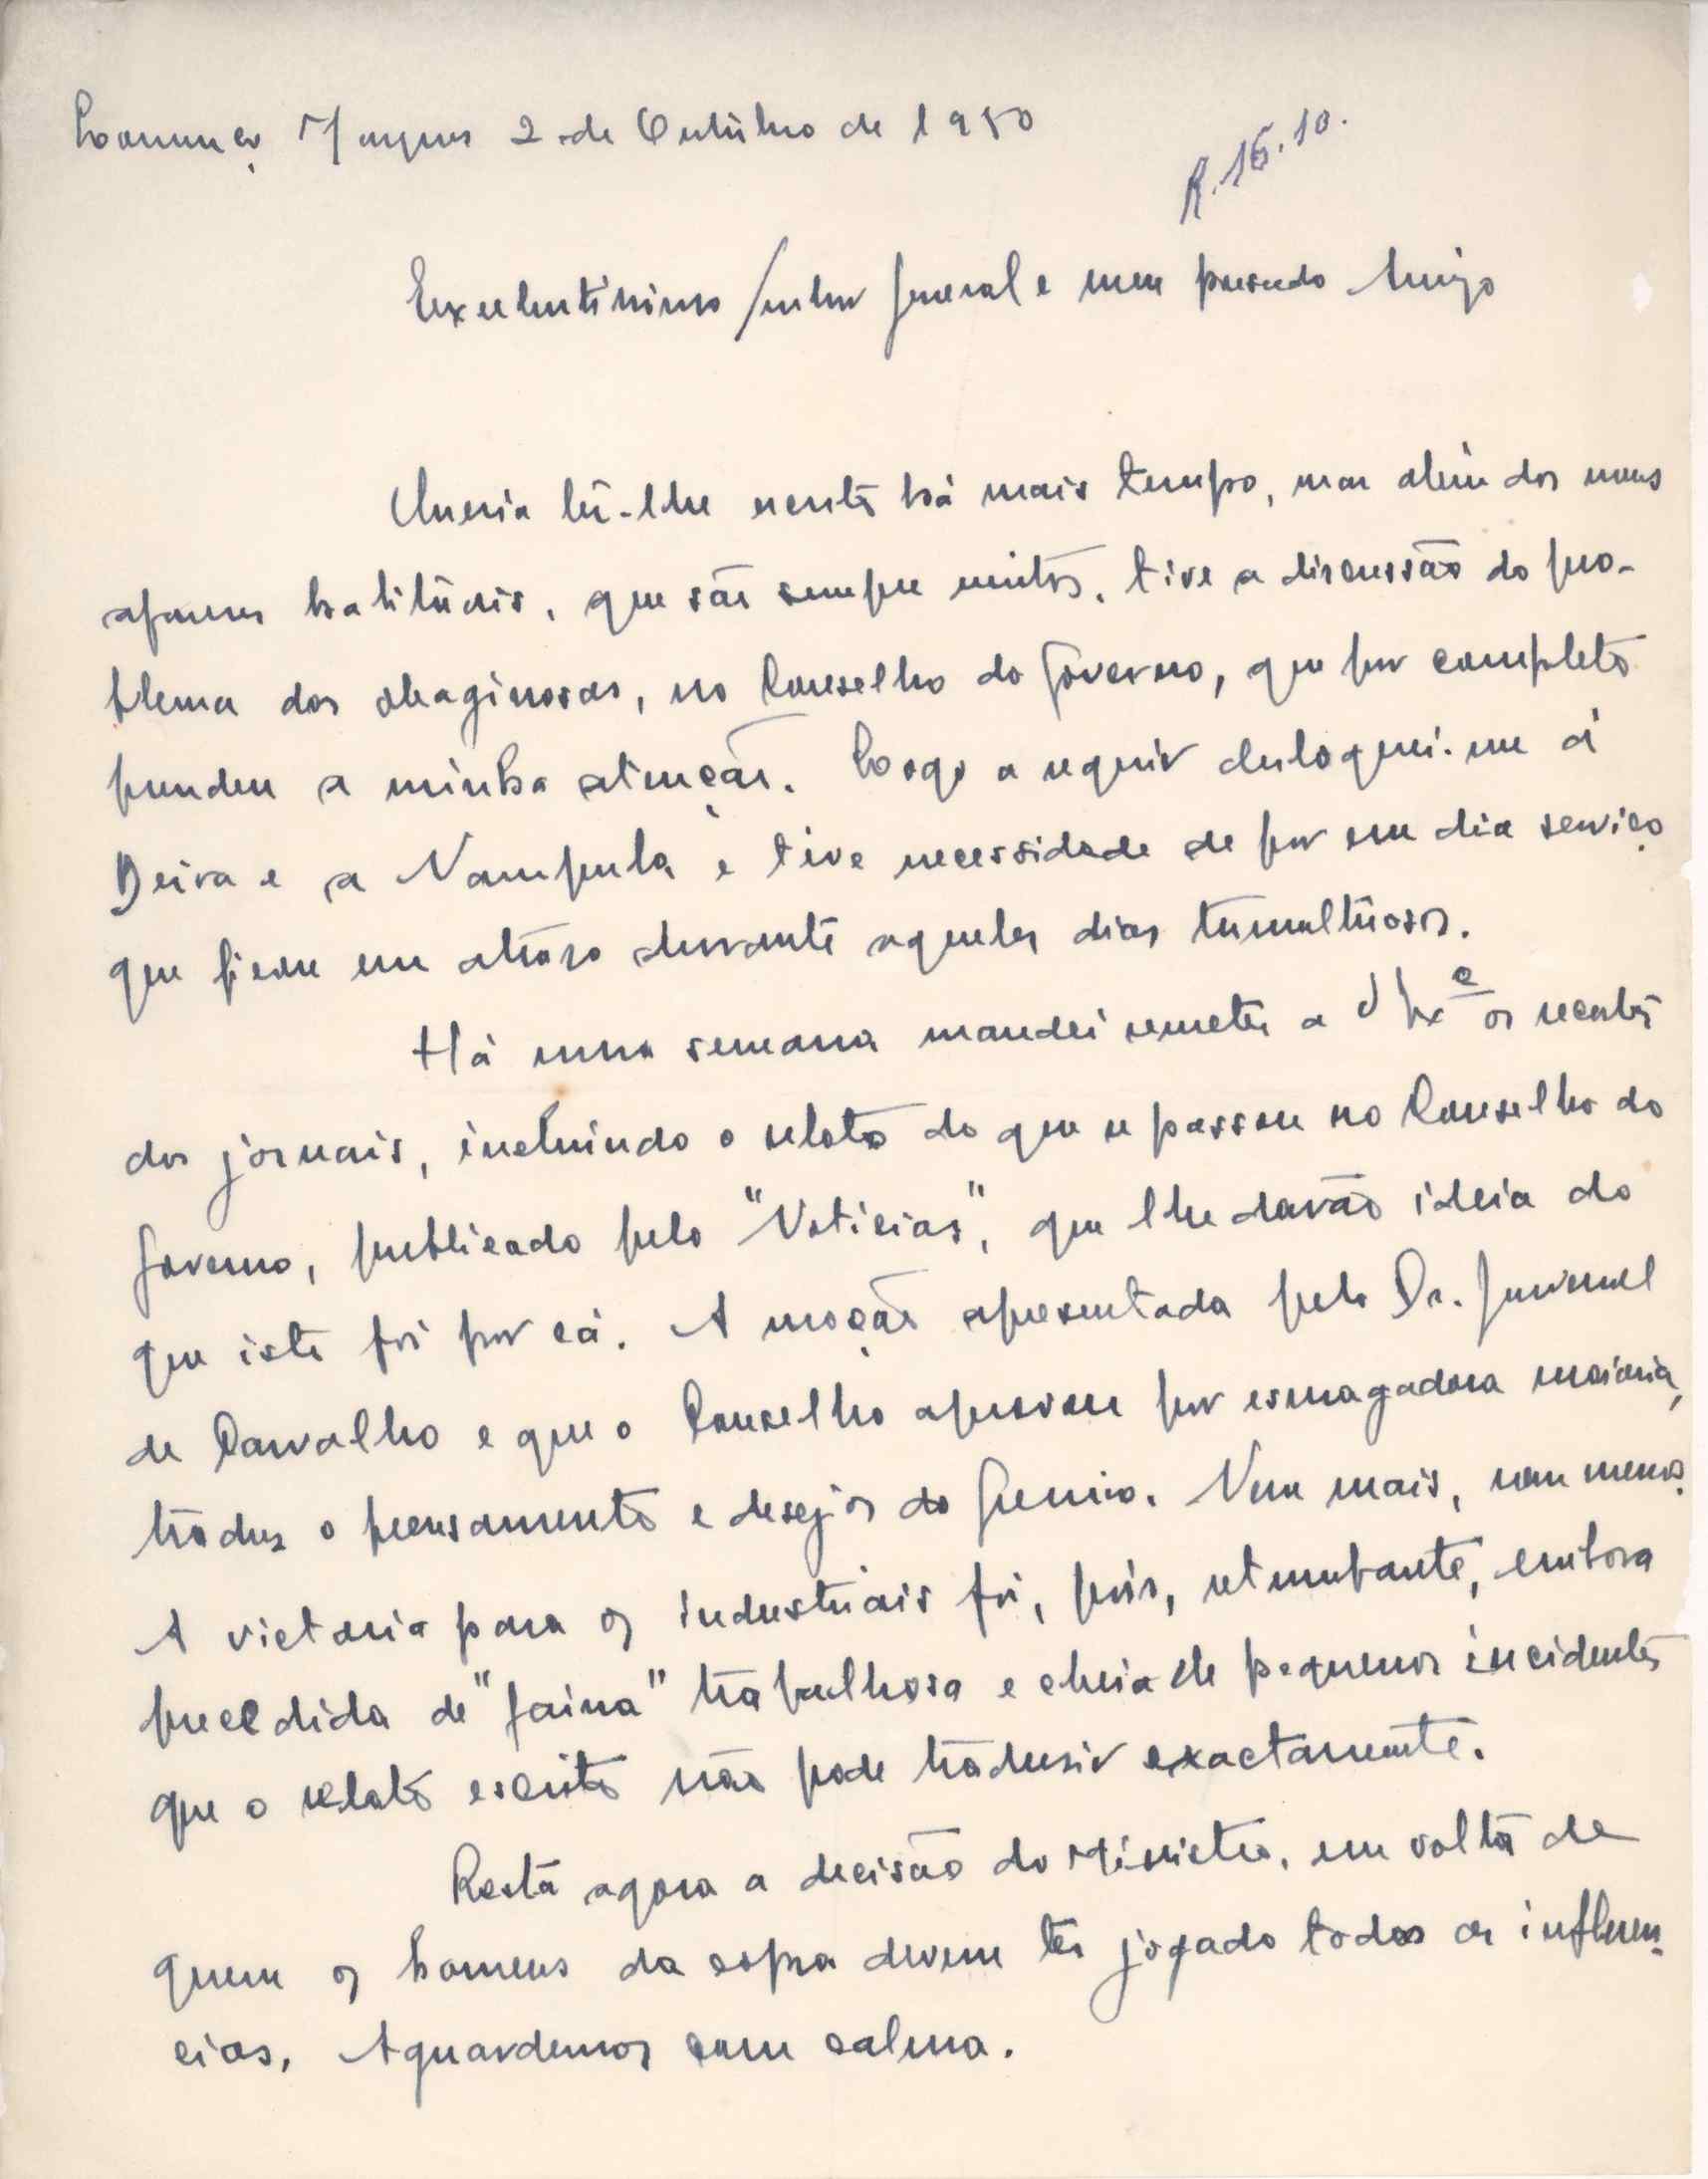 Lourenço Marques 2 de Outubro de 1950
R. 16.10.
Excelentissimo Senhor General e meu presado Amigo
Queria têr-lhe escrito há mais tempo, mas além dos meus
afazeres habituais, que são sempre muitos, tive a discussão do pro-
blema das oleaginosas, no Conselho do Governo, que por completo
prendeu a minha atenção. Logo a seguir desloquei-me á
Beira e a Nampula e tive necessidade de por em dia serviço
que ficou em atraso durante aqueles dias tumultuosos.
Há uma semana mandei remeter a V Exª os recortes
dos jornais, incluindo o relato do que se passou no Conselho do
Governo, publicado pelo "Noticias", que lhe davão ideia do
que isto foi por cá. A moção apresentada pelo Dr. Juvenal
de Carvalho e que o Conselho aprovou por esmagadora maioria,
traduz o pensamento e desejos do Gremio. Nem mais, nem menos.
A victoria para os industriais foi, pois, retumbante, embora
precedida de "faina" trabalhosa e cheia de pequenos incidentes
que o relato escrito não pode tradusir exactamente.
Resta agora a decisão do Ministro, em volta de
quem os homens da copra devem ter jogado todas as influen-
cias. Aguardemos com calma.